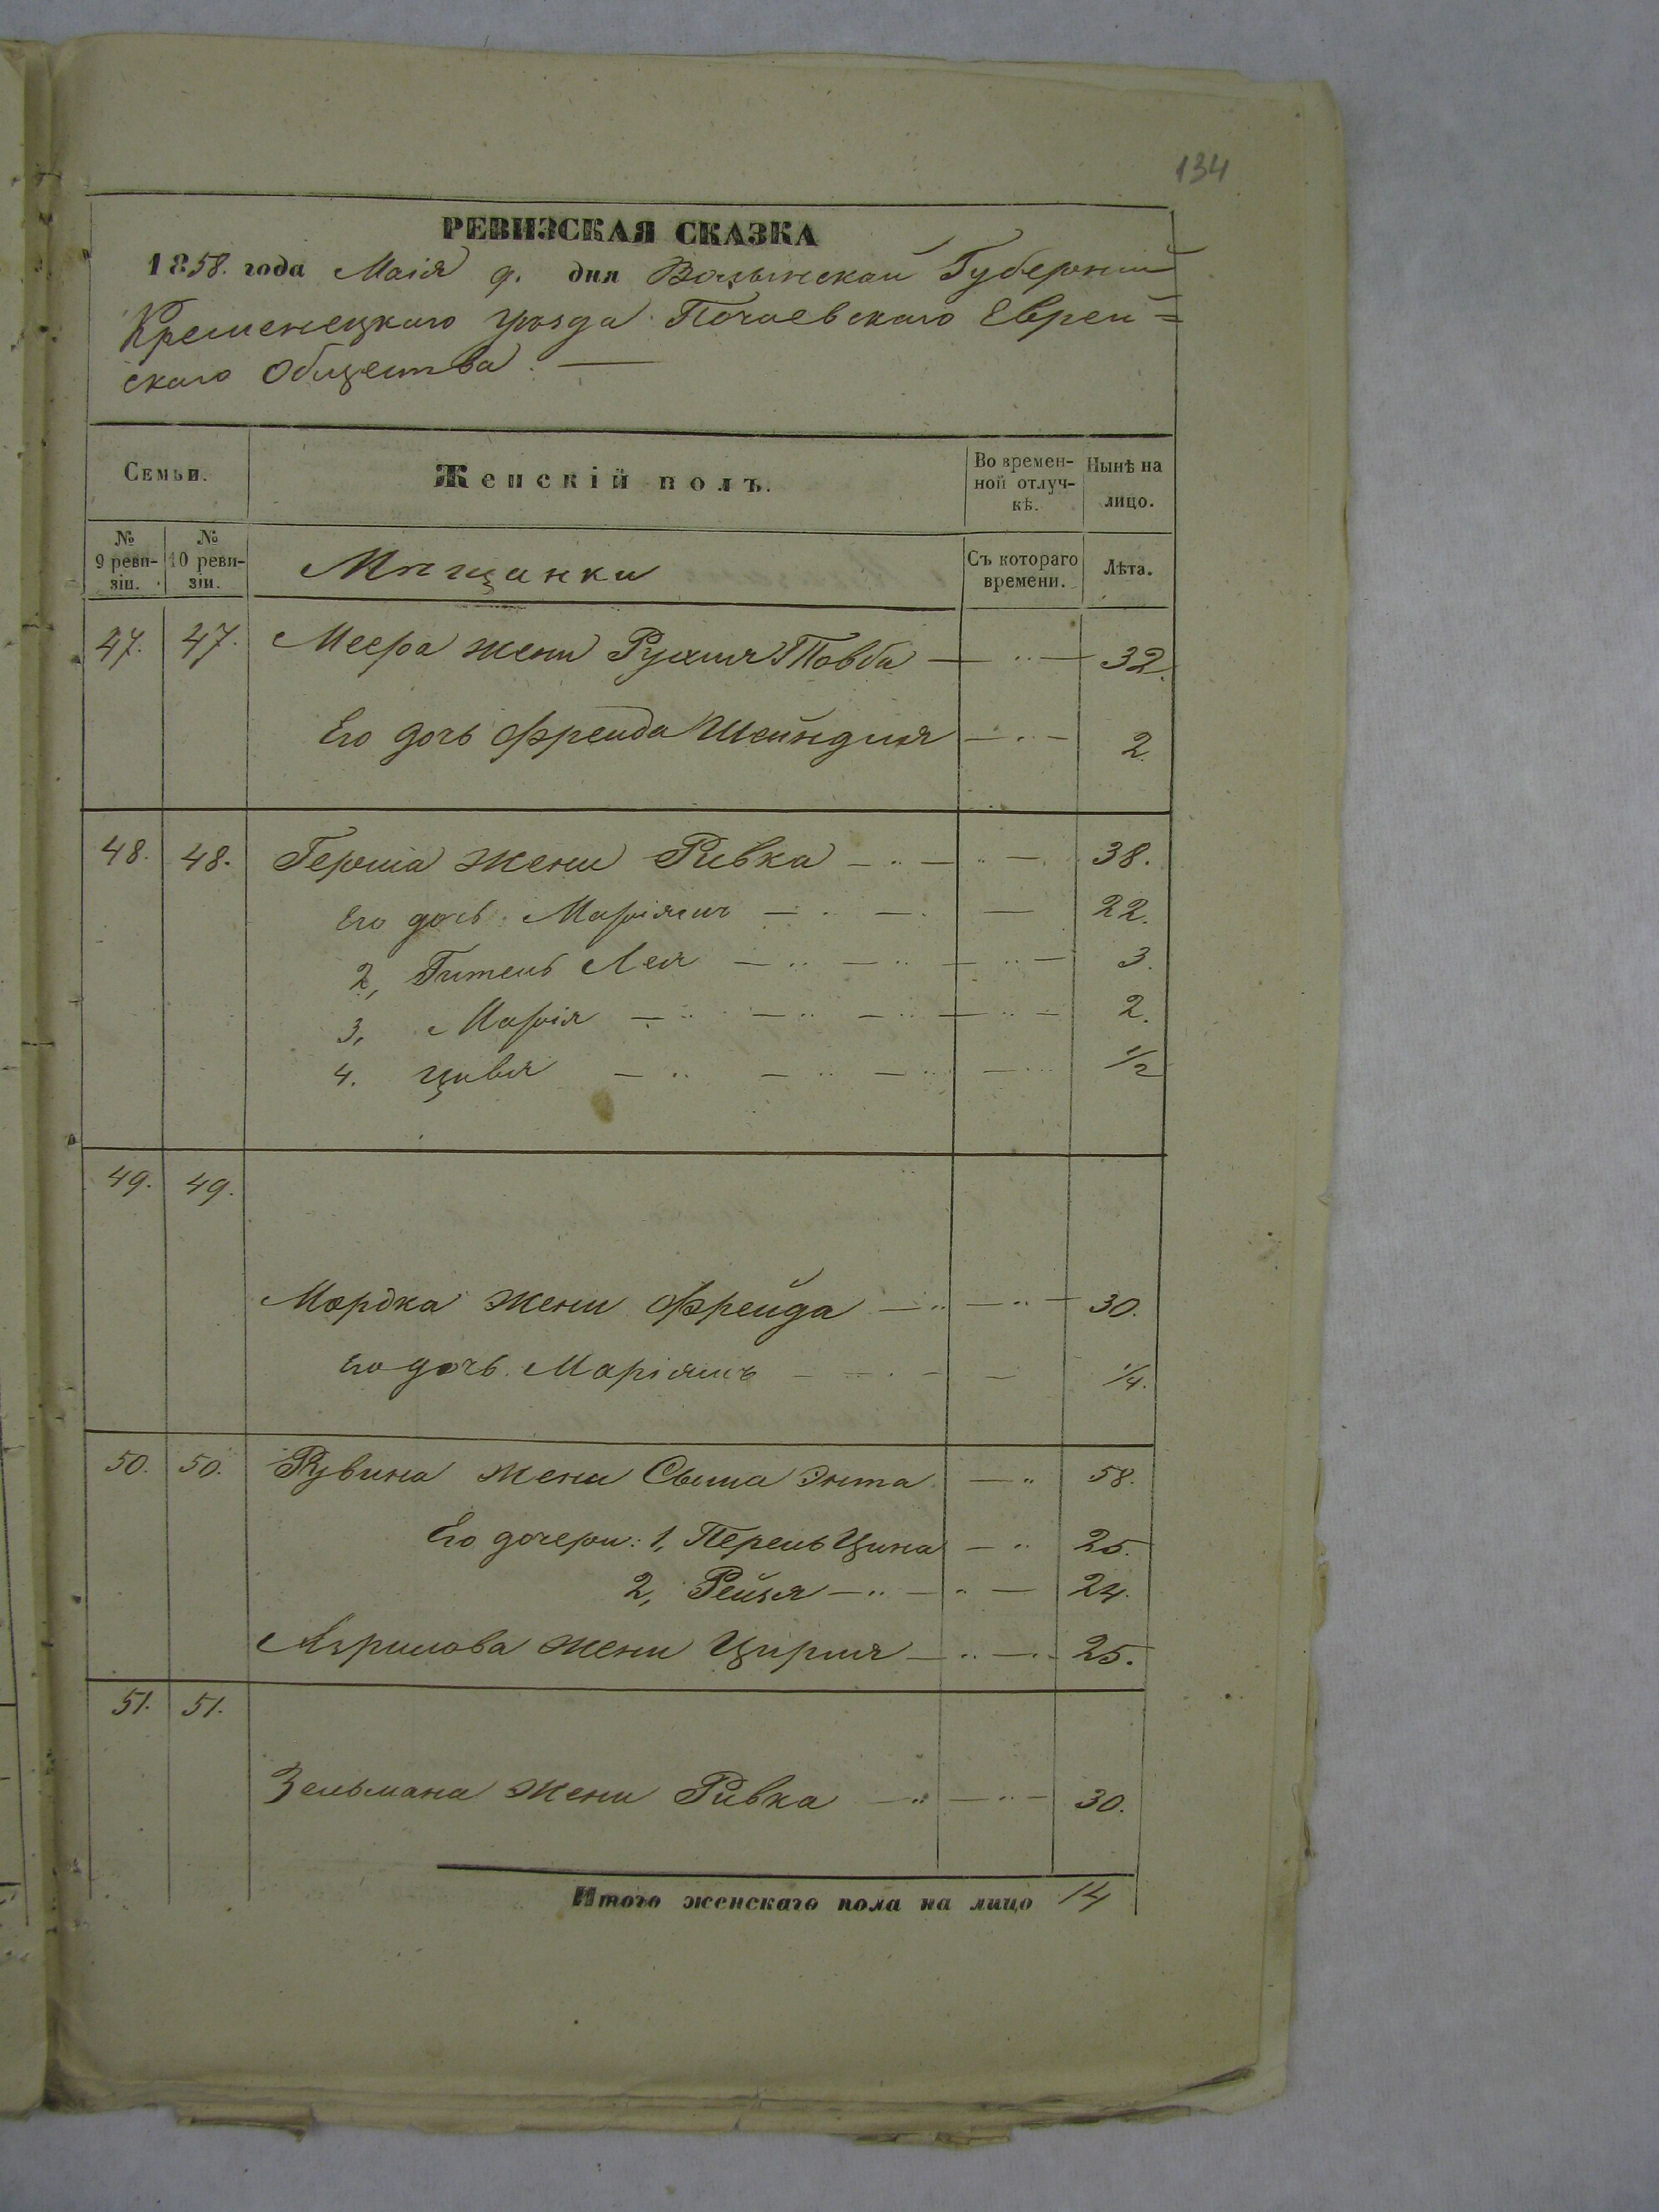 134
РЕВИЗСКАЯ СКАЗКА
1858. года Маія 9. дня Волынской Губерніи
Кременецкаго уѣзда Почаевскаго Еврей=
скаго Общества. —
Семьи.
Женскій полъ.
Во времен-
ной отлуч-
кѣ.
Нынѣ на
лицо.
№
9 реви-
зіи.
№
10 реви-
зіи.
Мѣщанки
Съ котораго
времени.
Лѣта.
47. 47. Меера жена Рухля Товба — 32.
Его дочь Фрейда Шейндля — 2.
48. 48. Герша жена Ривка — 38.
Его дочь Маріямъ — 22.
2, Гитель Лея — 3.
3, Марія — 2.
4. Цивья — 1/2
49. 49.
Мордка жена Фрейда — 30.
Его дочь Маріямъ — 1/4.
50. 50. Рувина жена Сыма Энта — 58.
Его дочери: 1, Перель Цина — 25.
2, Рейзя — 24.
жена Цирля — 25.
51. 51.
Зельмана жена Ривка — 30.
Итого женскаго пола на лицо 14